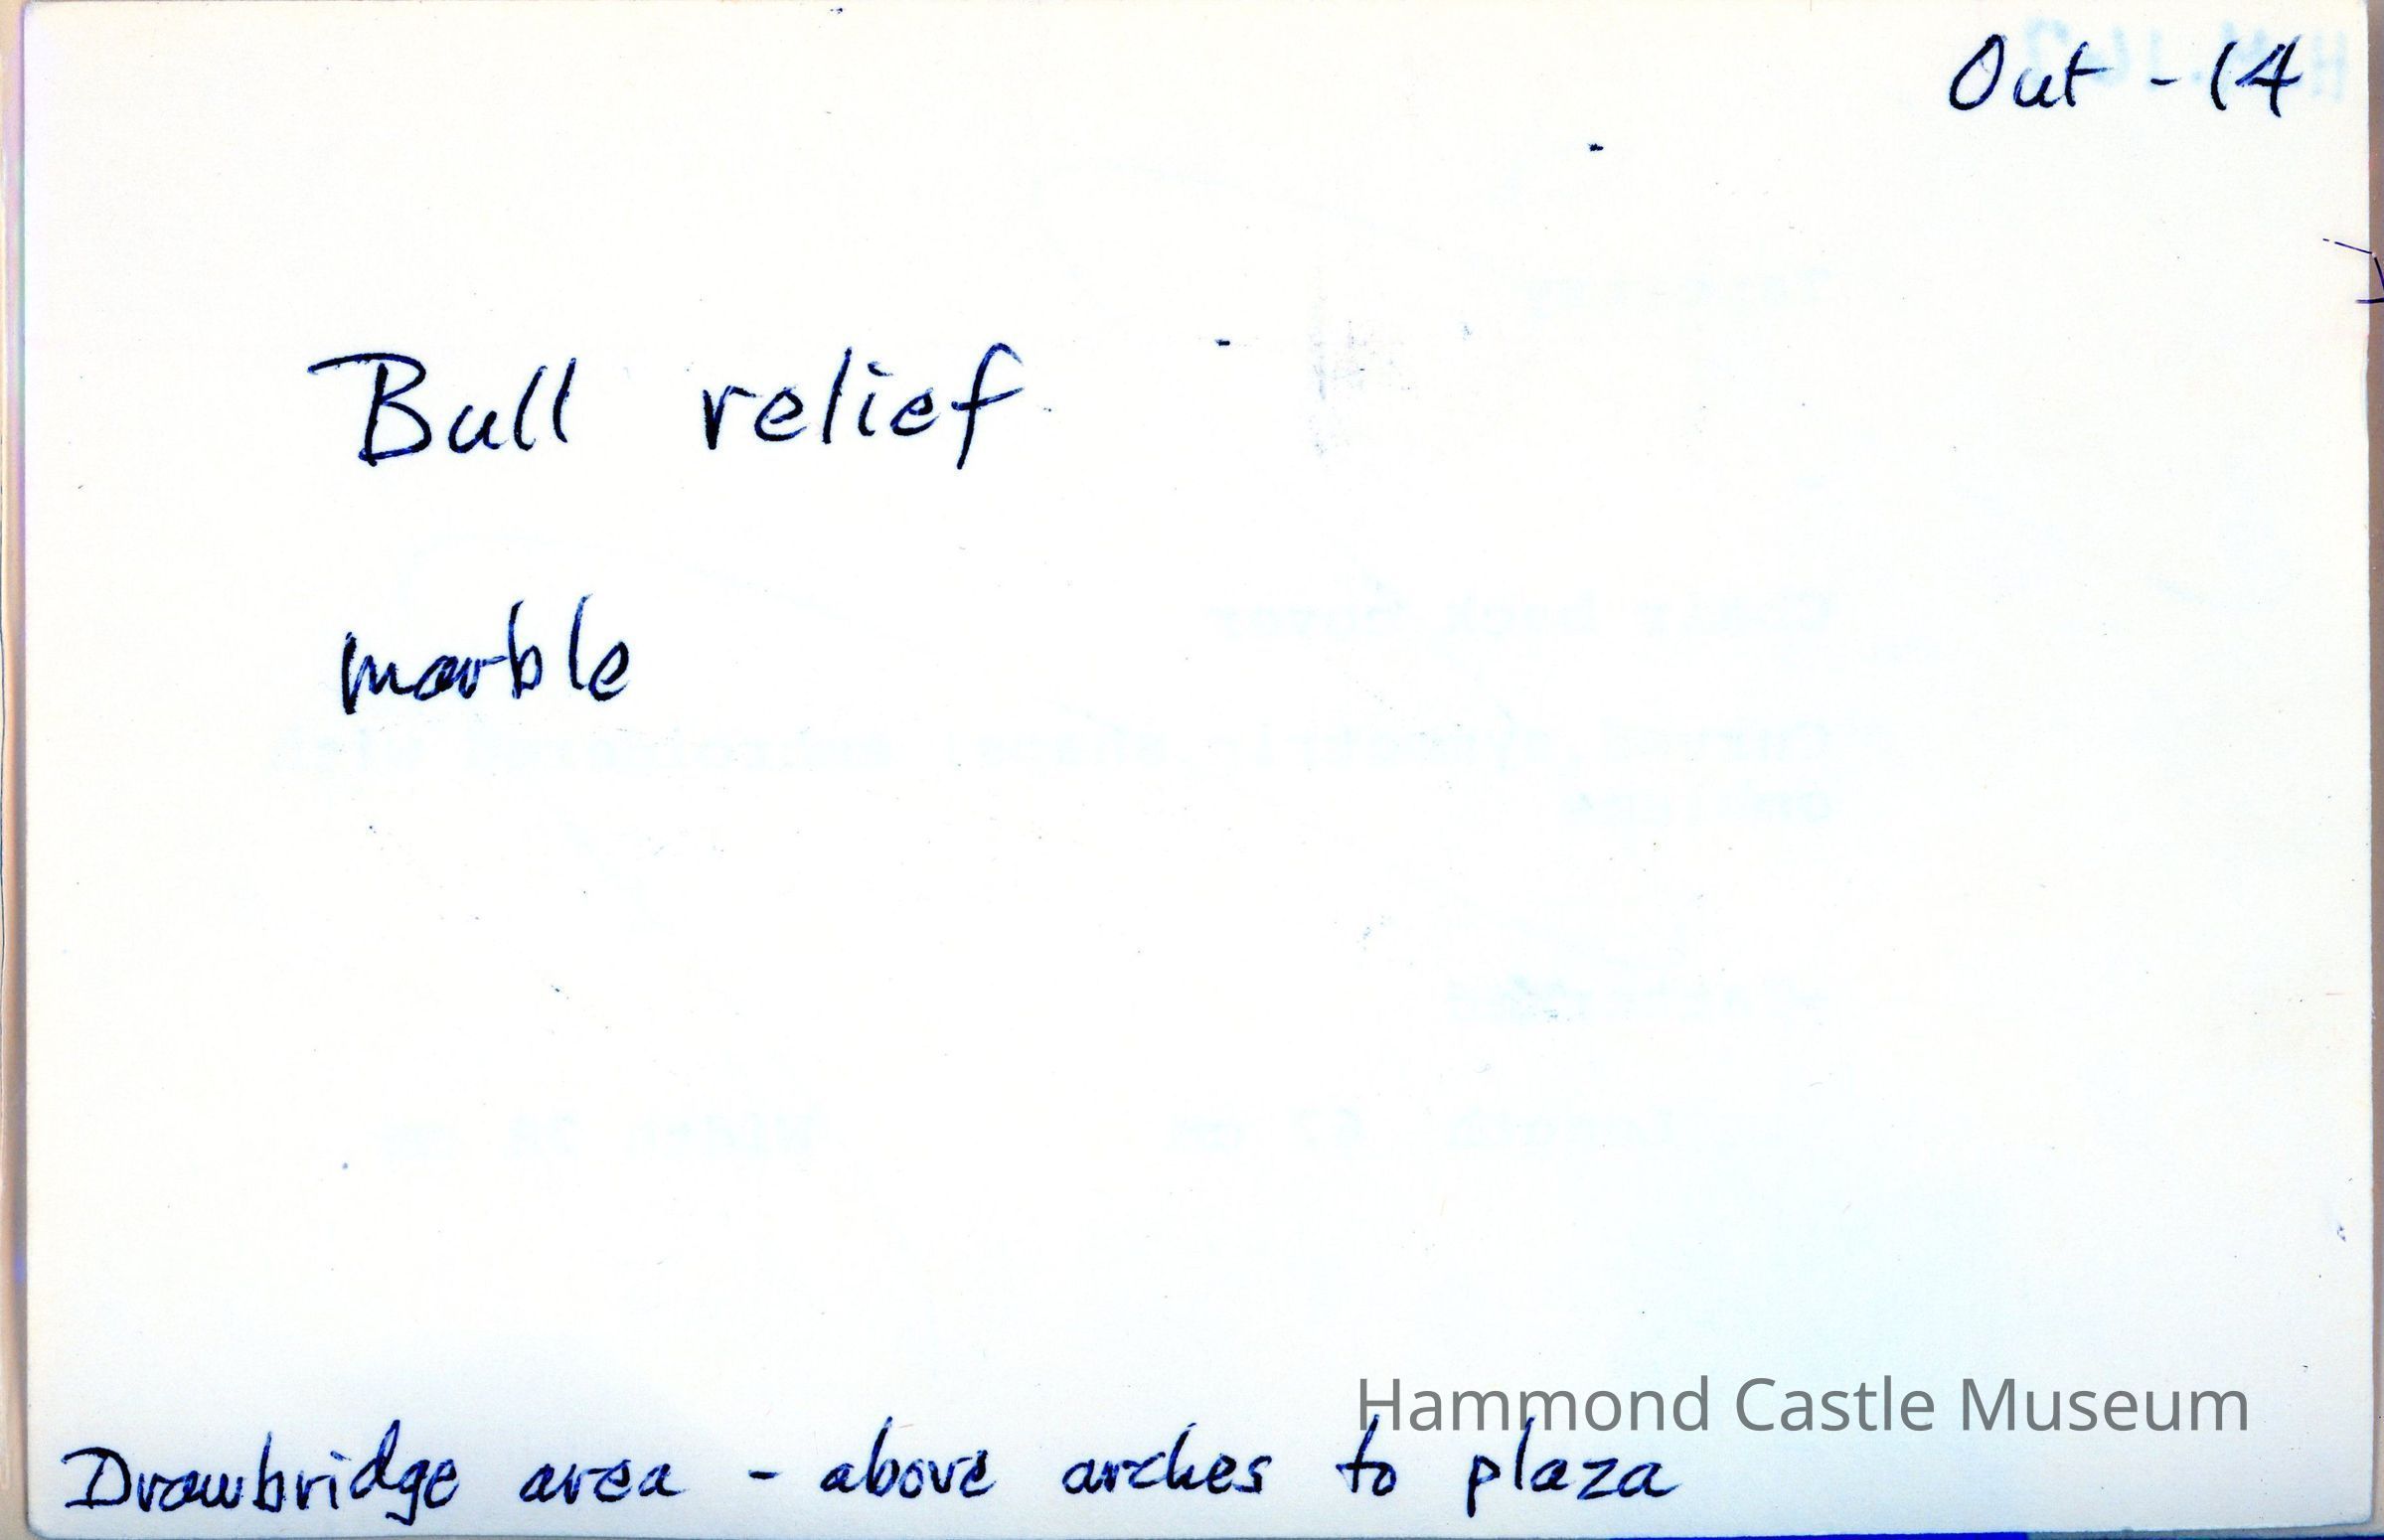 Out - 14
Bull relief
marble
Hammond Castle Museum
Drawbridge area - above arches to plaza